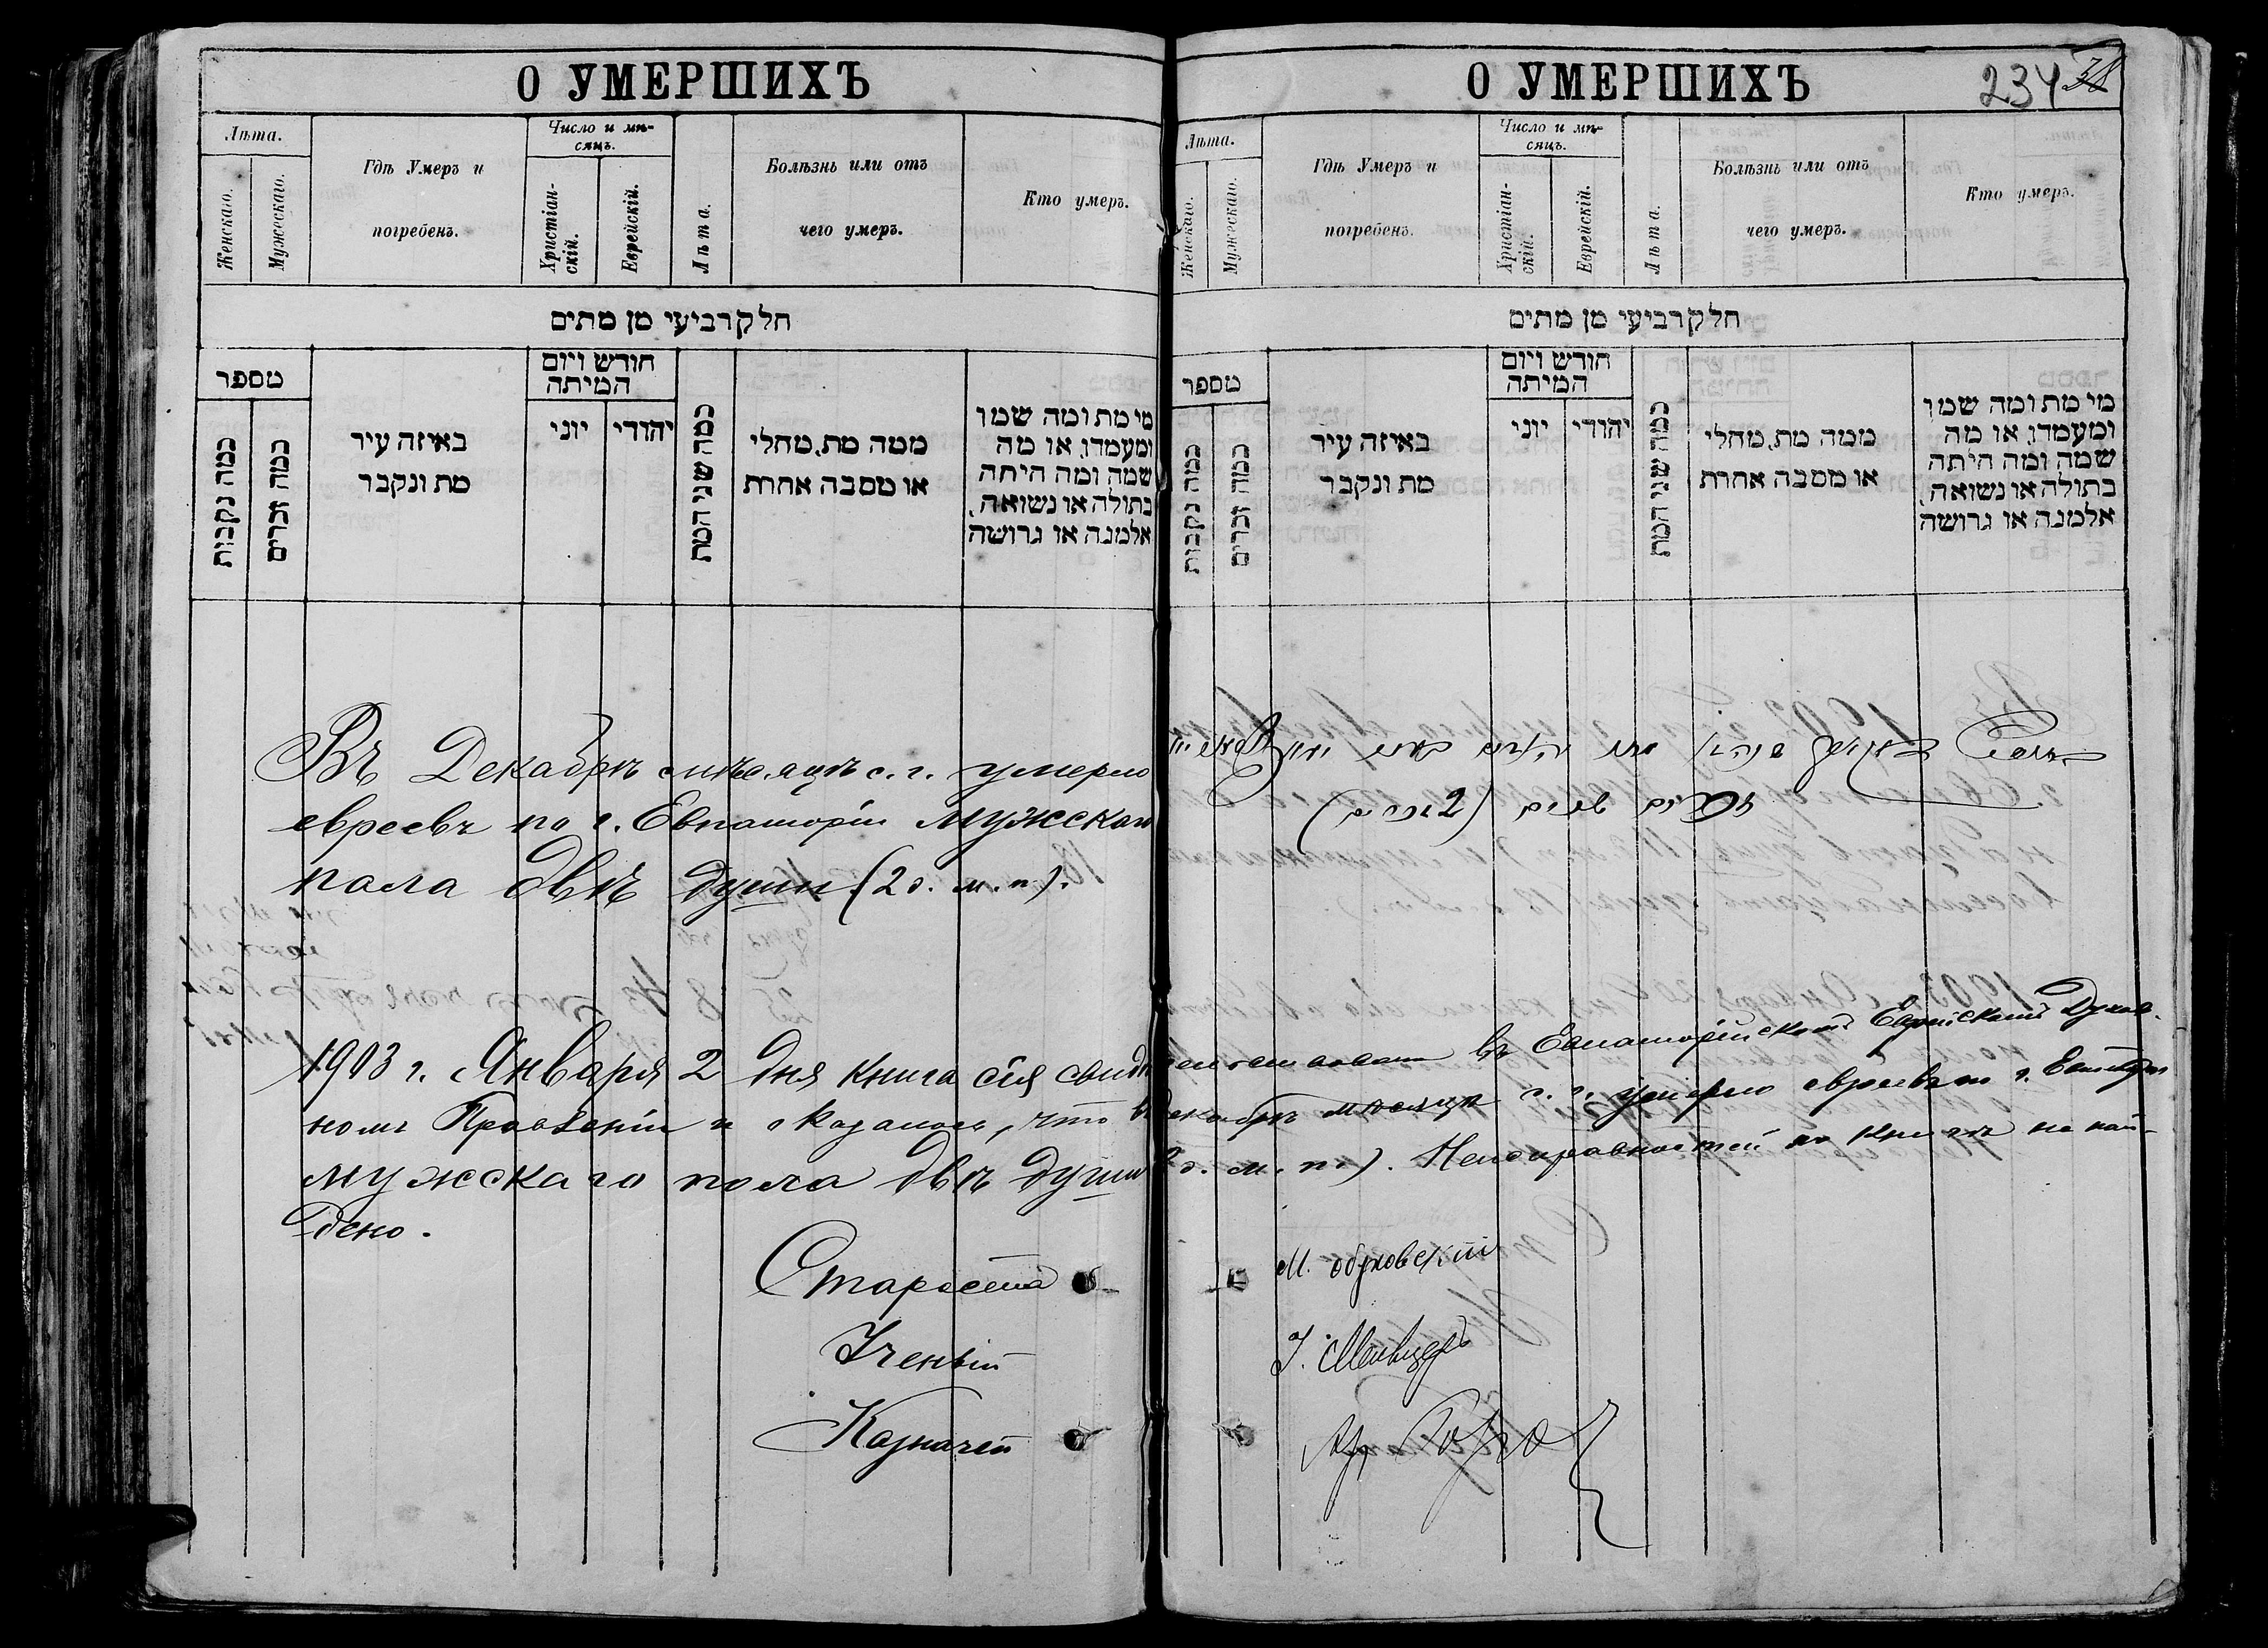 О УМЕРШИХЪ
Лѣта.
Женскаго.
Мужескаго.
Гдѣ Умеръ и
погребенъ.
Число и мѣ-
сяцъ.
Христіан-
скій.
Еврейскій.
Лѣта.
Болѣзнь или отъ
чего умеръ.
Кто умеръ.
חלק רביעי מן מתים
מספר
כמה נקבות
כמה זכרים
באיזה עיר
מת ונקבר
חודש ויום
המיתה
יוני
יהודי
כמה שני המת
ממה מת, מחלי
או מסבה אחרת
מי מת ומה שמו
ומעמדו, או מה
שמה ומה היתה
בתולה או נשואה,
אלמנה או גרושה
Въ Декабрѣ мѣсяцѣ с. г. умерло
евреевъ по г. Евпаторіи мужскаго
пола двѣ души (2 д. м. п.).
О УМЕРШИХЪ
234
38
Лѣта.
Женскаго.
Мужескаго.
Гдѣ Умеръ и
погребенъ.
Число и мѣ-
сяцъ.
Христіан-
скій.
Еврейскій.
Лѣта.
Болѣзнь или отъ
чего умеръ.
Кто умеръ.
חלק רביעי מן מתים
מספר
כמה נקבות
כמה זכרים
באיזה עיר
מת ונקבר
חודש ויום
המיתה
יוני
יהודי
כמה שני המת
ממה מת, מחלי
או מסבה אחרת
מי מת ומה שמו
ומעמדו, או מה
שמה ומה היתה
בתולה או נשואה,
אלמנה או גרושה
1903 г. Января 2 дня книга сія свидѣтельствована въ Евпаторійскомъ Еврейскомъ Духов-
номъ Правленіи и оказалось, что въ декабрѣ мѣсяцѣ с. г. умерло евреевъ по г. Евпаторіи
мужскаго пола двѣ души (2 д. м. п.). Неисправностей по книгѣ не най-
дено.
Староста М. Обуховскій
Ученый
Казначей